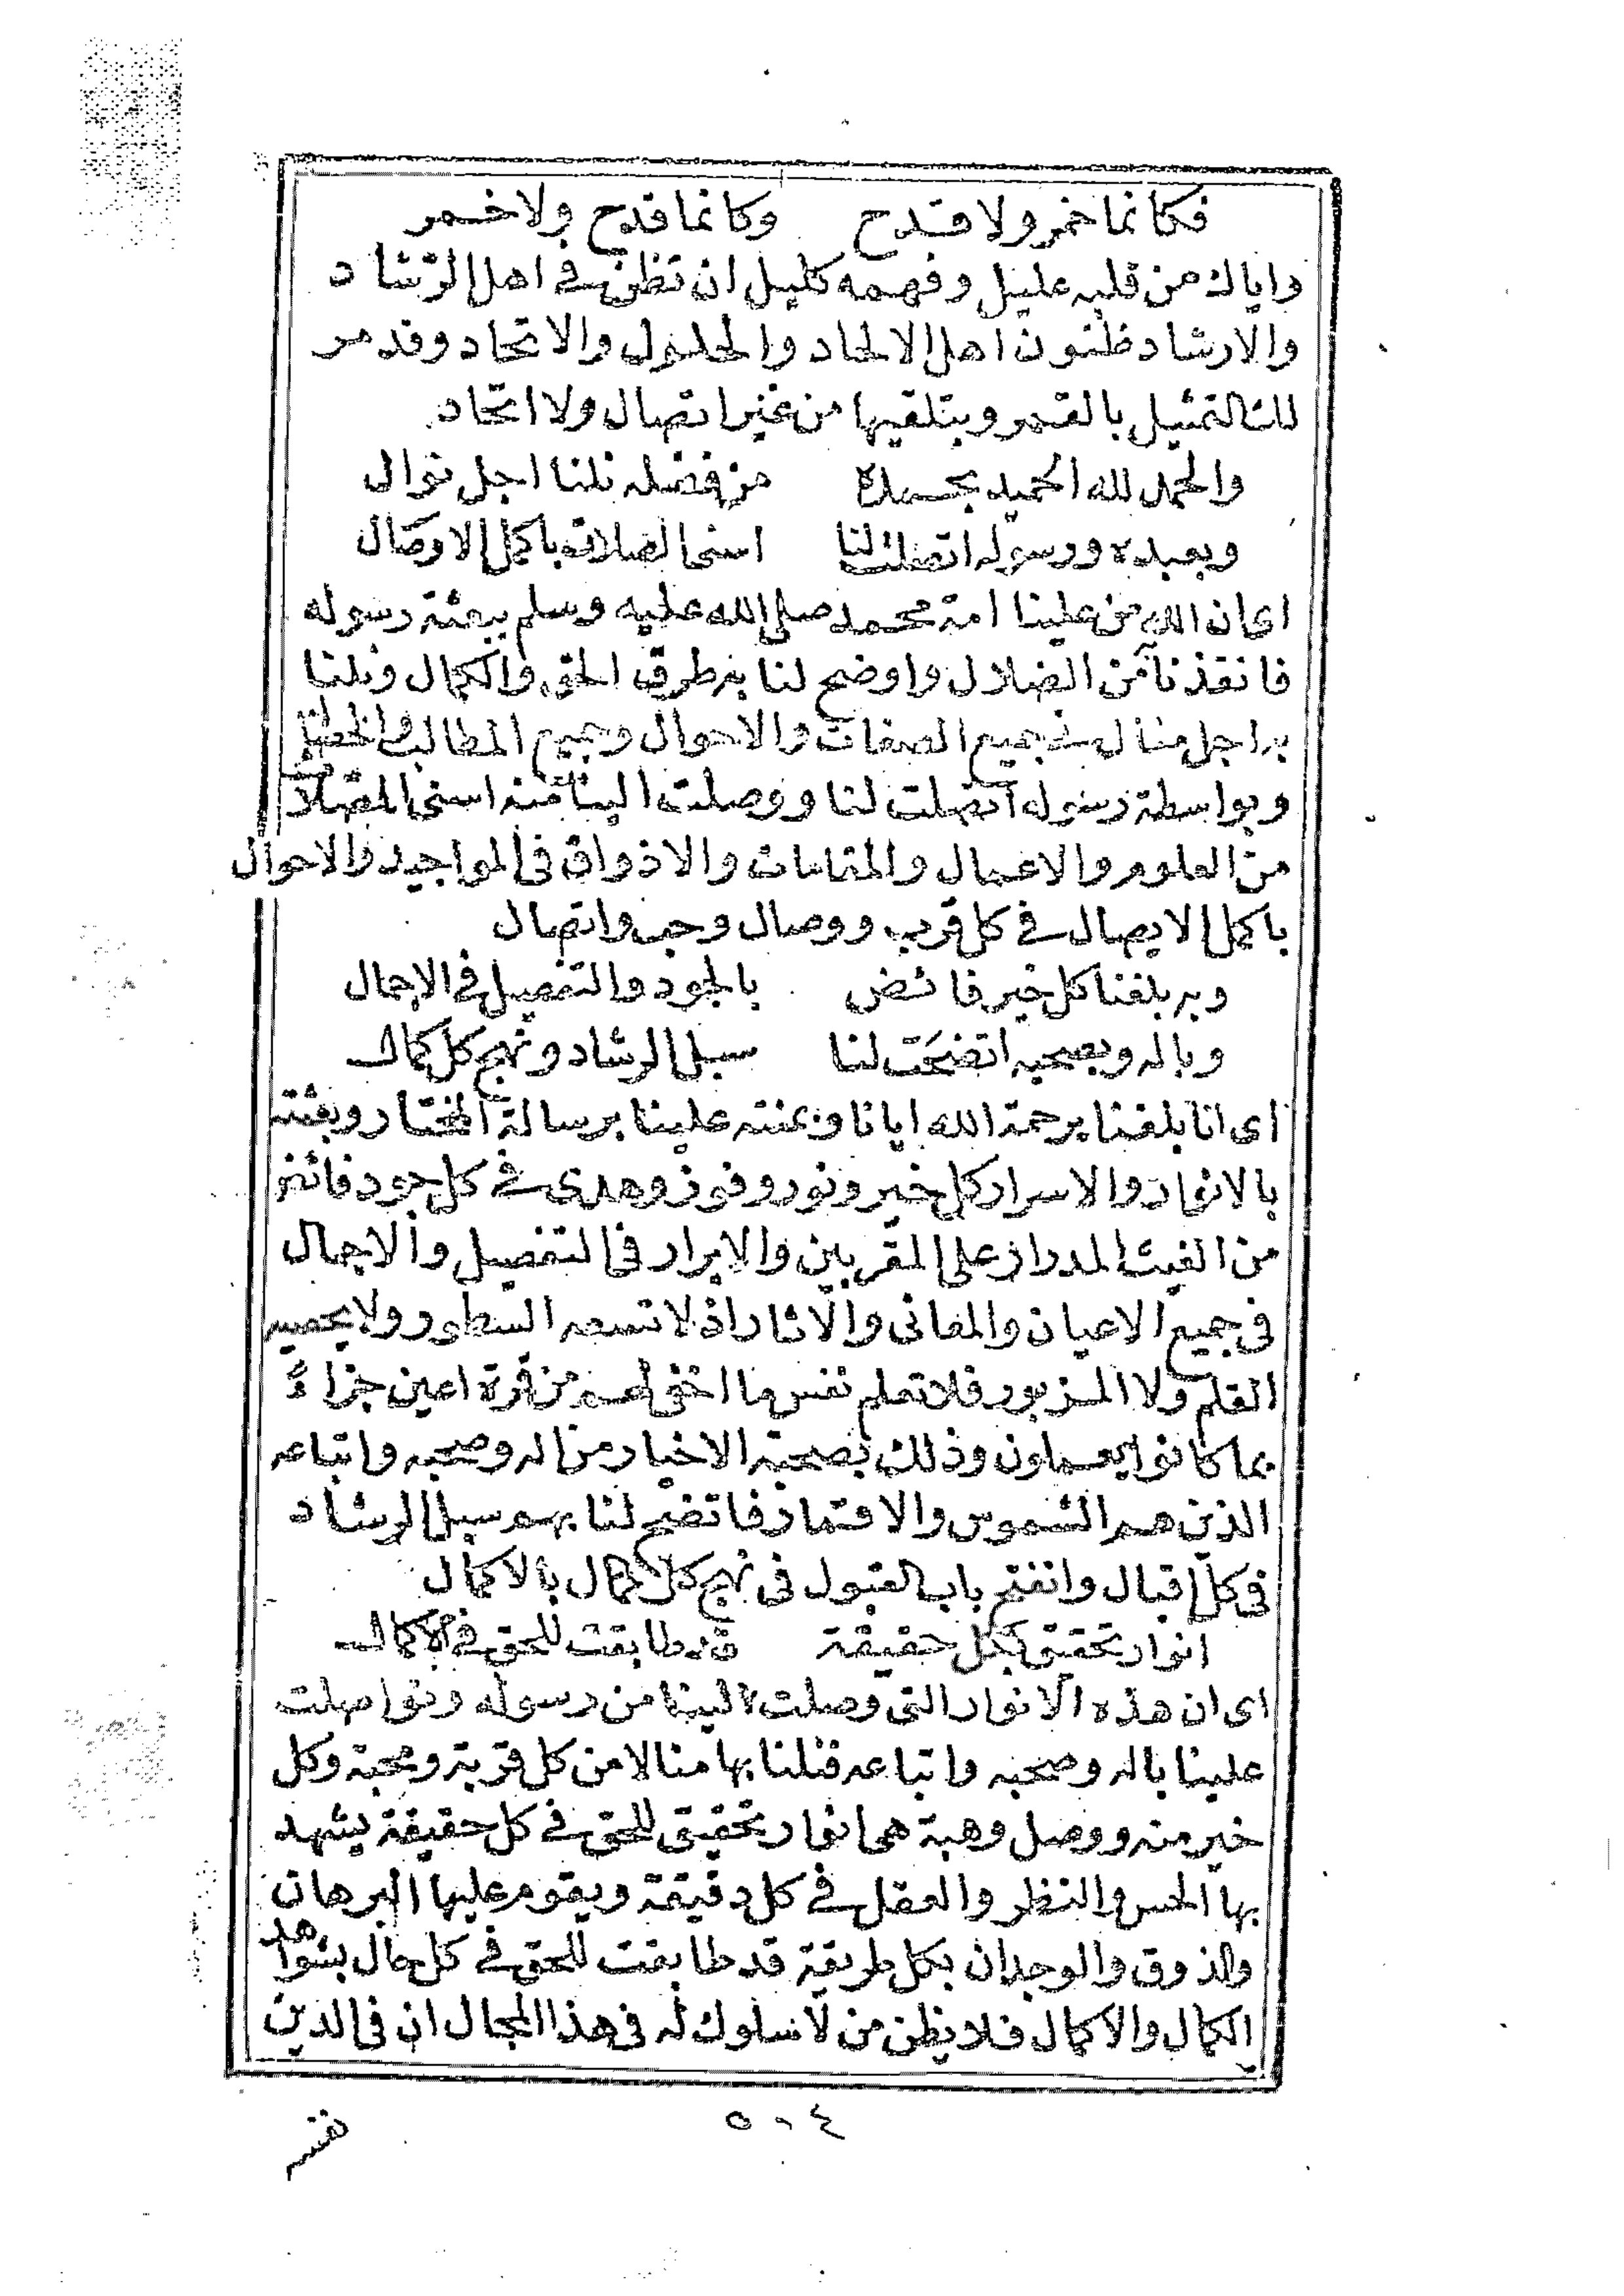 فكانما خمر ولا قدح وكانما قدح ولا خمر
واياك من قلبه عليل وفهمه كليل ان تظن في اهل الرشاد
والارشاد ظنون اهل الالحاد والحلول والاتحاد وقد مر
لك التمثيل بالقمر ويتلقيها من غير اتصال ولا اتحاد
والحمد لله الحميد بحمده من فضله نلنا اجل نوال
وبعبده ورسوله اتصلت لنا اسنى الصلات باكمل الاوصال
اي ان الله من علينا امة محمد صلى الله عليه وسلم ببعثة رسوله
فانقذنا من الضلال واوضح لنا به طرق الحق والكمال ونلنا
به اجل منال في جميع الصفات والاحوال وجميع المطالب
وبواسطة رسوله اتصلت لنا ووصلت الينا منه اسنى الصلات
من العلوم والاعمال والمقامات والاذواق في المواجيد والاحوال
باكمل الايصال في كل قرب ووصال وحب واتصال
وبه بلغنا كل خير فائض بالجود والتفصيل في الاجمال
وباله وبصحبه اتضحت لنا سبل الرشاد ونهج كل كمال
اي انا بلغنا برحمة الله ايانا ومنته علينا برسالة المختار وبعثته
بالانوار والاسرار كل خير ونور وفوز وهدى في كل جود فائض
من الغيث المدرار على المقربين والابرار في التفصيل والاجمال
في جميع الاعيان والمعاني والاثار اذ لا تسعه السطور ولا يحصيه
القلم ولا المزبور فلا تعلم نفس ما اخفي لهم من قرة اعين جزاءً
بما كانوا يعملون وذلك بصحبة الاخيار من اله وصحبه واتباعه
الذين هم الشموس والاقمار فاتضح لنا بهم سبل الرشاد
في كل اقبال وانفتح باب القبول في نهج كل كمال بالاكمال
انوار تحقيق بكل حقيقة قد طابقت للحق في الاكمال
اي ان هذه الانوار التي وصلت الينا من رسوله وتواصلت
علينا باله وصحبه واتباعه فنلنا بها منالا من كل قربة ومحبة وكل
خير منه ووصل وهبة هي انوار تحقيق للحق في كل حقيقة يشهد
بها الحس والنظر والعقل في كل دقيقة ويقوم عليها البرهان
والذوق والوجدان بكل طريقة قد طابقت للحق في كل حال بشواهد
الكمال والاكمال فلا يظن من لا سلوك له في هذا المجال ان في الدين
٥٠٤